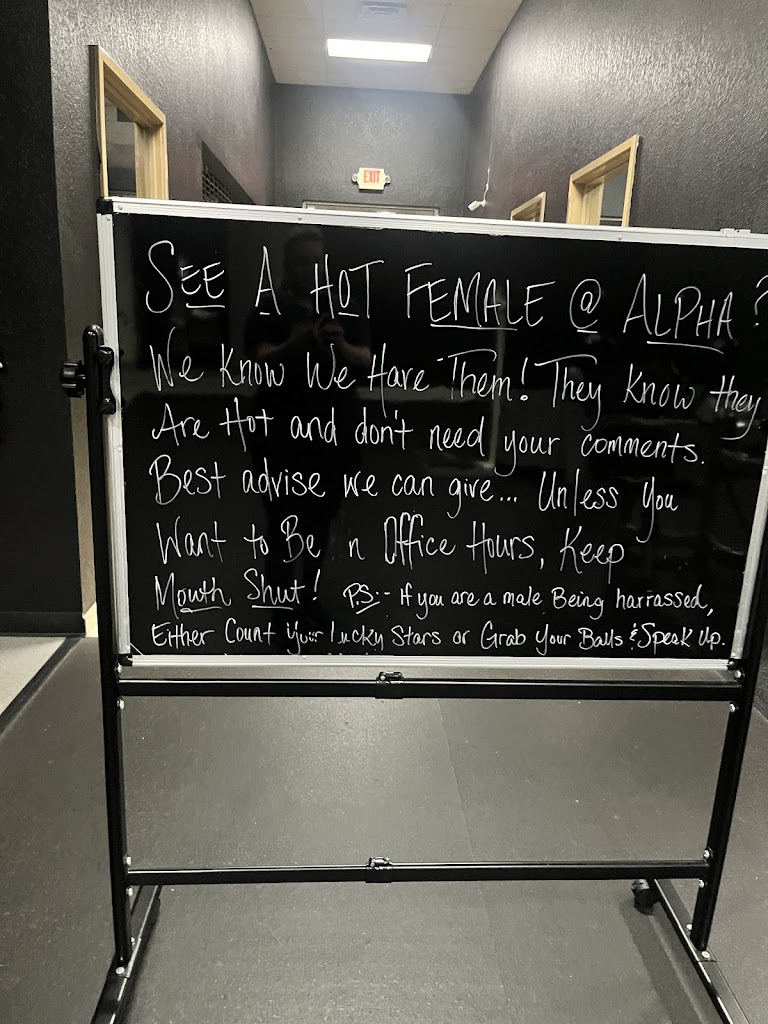 EXIT
SEE A HOT FEMALE @ ALPHA?
We Know We Have Them! They Know they
Are Hot and don't need your comments.
Best advise we can give... Unless you
Want to Be n Office Hours, Keep
Mouth Shut! P.S:- If you are a male Being harrassed,
Either Count Your Lucky Stars or Grab Your Balls & Speak Up.